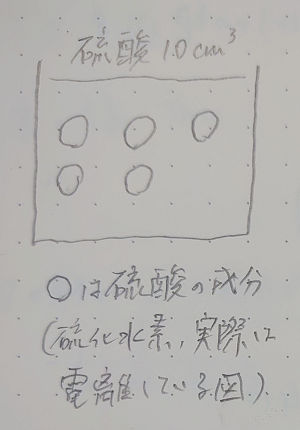 硫酸 10cm³
○は硫酸の成分
(硫化水素,実際は
電離している図.)